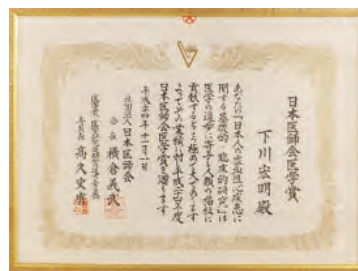 日本医師会医学賞
下川宏明殿
あなたの「日本人の虚血性心疾患に
関する基礎的・臨床的研究」は
医学の進歩に寄与し人類の福祉に
貢献するところ極めて大であります
よってその業績に対し平成二十四年度
日本医師会医学賞を贈ります
平成二十四年十一月一日
社団法人日本医師会
会長 横倉義武
医学賞・医学研究助成費選考委員会
委員長 高久史麿